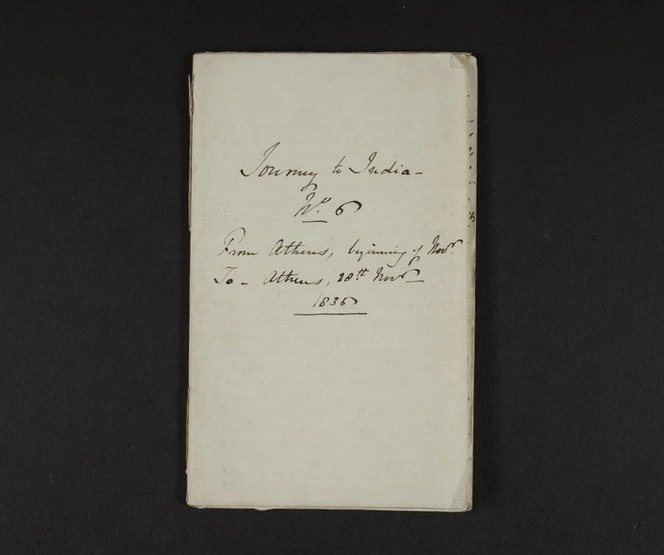 Journey to India -
No. 6
From Athens, beginning of Novr.
To - Athens, 28th Novr
1836